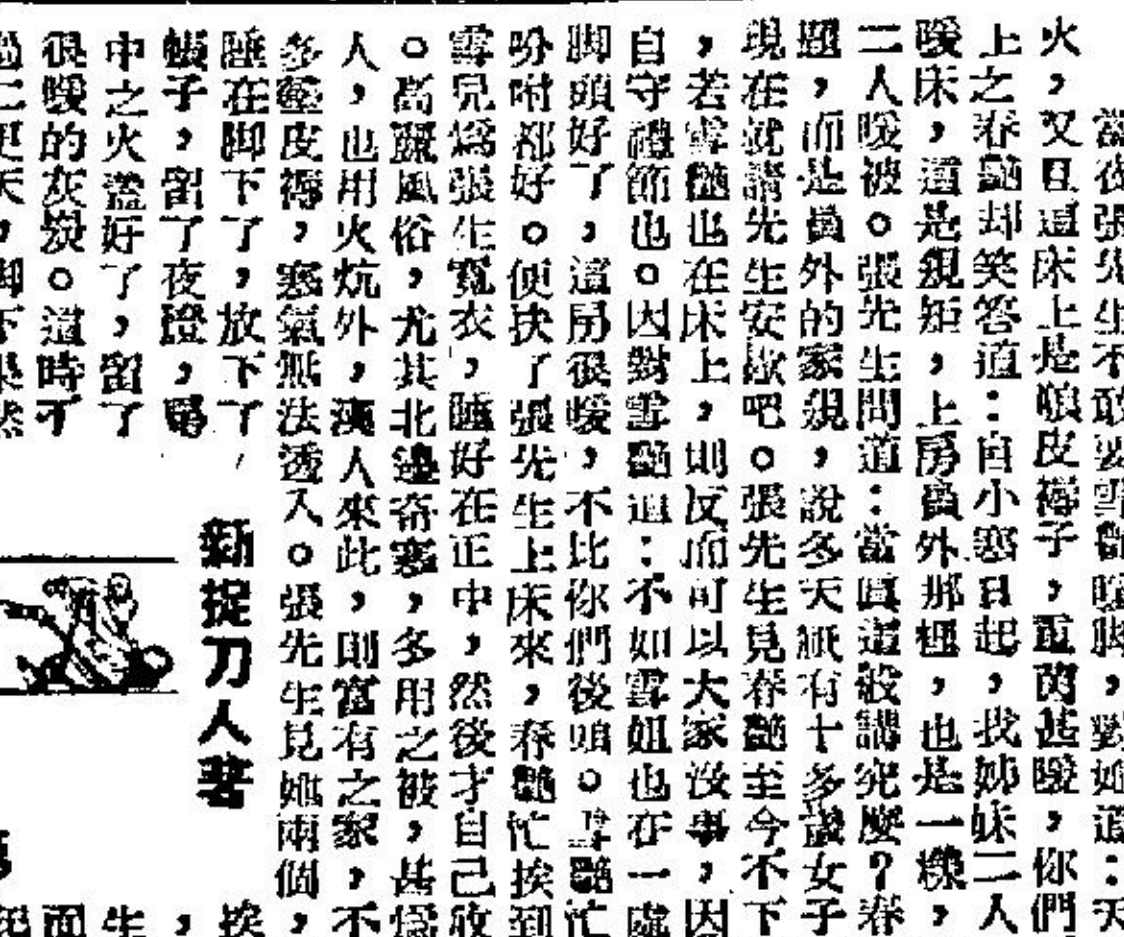 當夜張先生不敢要雪艷暖脚，對她道：天
火，又且這床上是狼皮褥子，重茵甚暖，你們
上之春艷却笑答道：自小寒日起，我姊妹二人
暖床，還是規矩，上房員外那裡，也是一樣，
二人暖被。張先生問道：當眞這般講究麼？春
題，而是員外的家規，說多天祇有十多歲女子
現在就請先生安歇吧。張先生見春艷至今不下
，若雪艷也在床上，則反而可以大家沒事，因
自守禮節也。因對雪艷道：不如雪姐也在一處
脚頭好了，這房很暖，不比你們後頭。雪艷忙
吩咐都好。便扶了張先生上床來，春艷忙挨到
雪兒爲張生寬衣，睡好在正中，然後才自己收
。高麗風俗，尤其北邊奇寒，多用之被，甚爲
人，也用火炕外，漢人來此，則富有之家，不
多藍皮褥，寒氣無法透入。張先生見她兩個，
睡在脚下了，放下了
帳子，留了夜燈，爲
中之火蓋好了，留了
很暖的灰炭。這時不
過二更天，脚下果然
新捉刀人著
挨
，
生
面